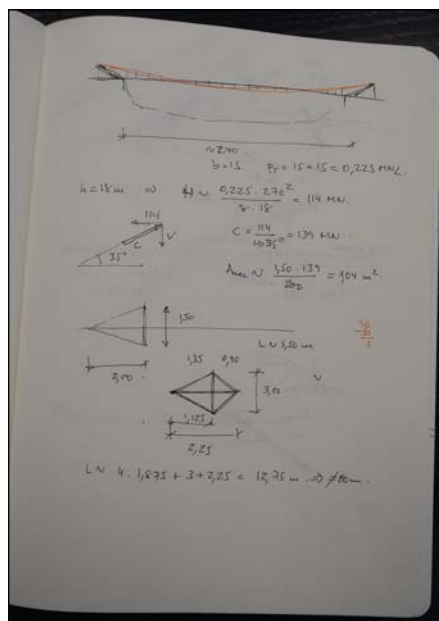 ~270
b=15 Pr = 15 × 15 = 0,225 MN/
h=18m ⇒ H ~ 0,225 · 270² / 8 · 18 = 114 MN.
114
C = 114 / cos35° = 139 MN
C V
35°
~ 1,50 · 139 / 200 = 1,04 m².
1,50
L ~ 5,50 m
2,00
1,35 0,90
3,00
1,125
2,25
L ~ 4 · 1,875 + 3 + 2,25 = 12,75 m ⇒